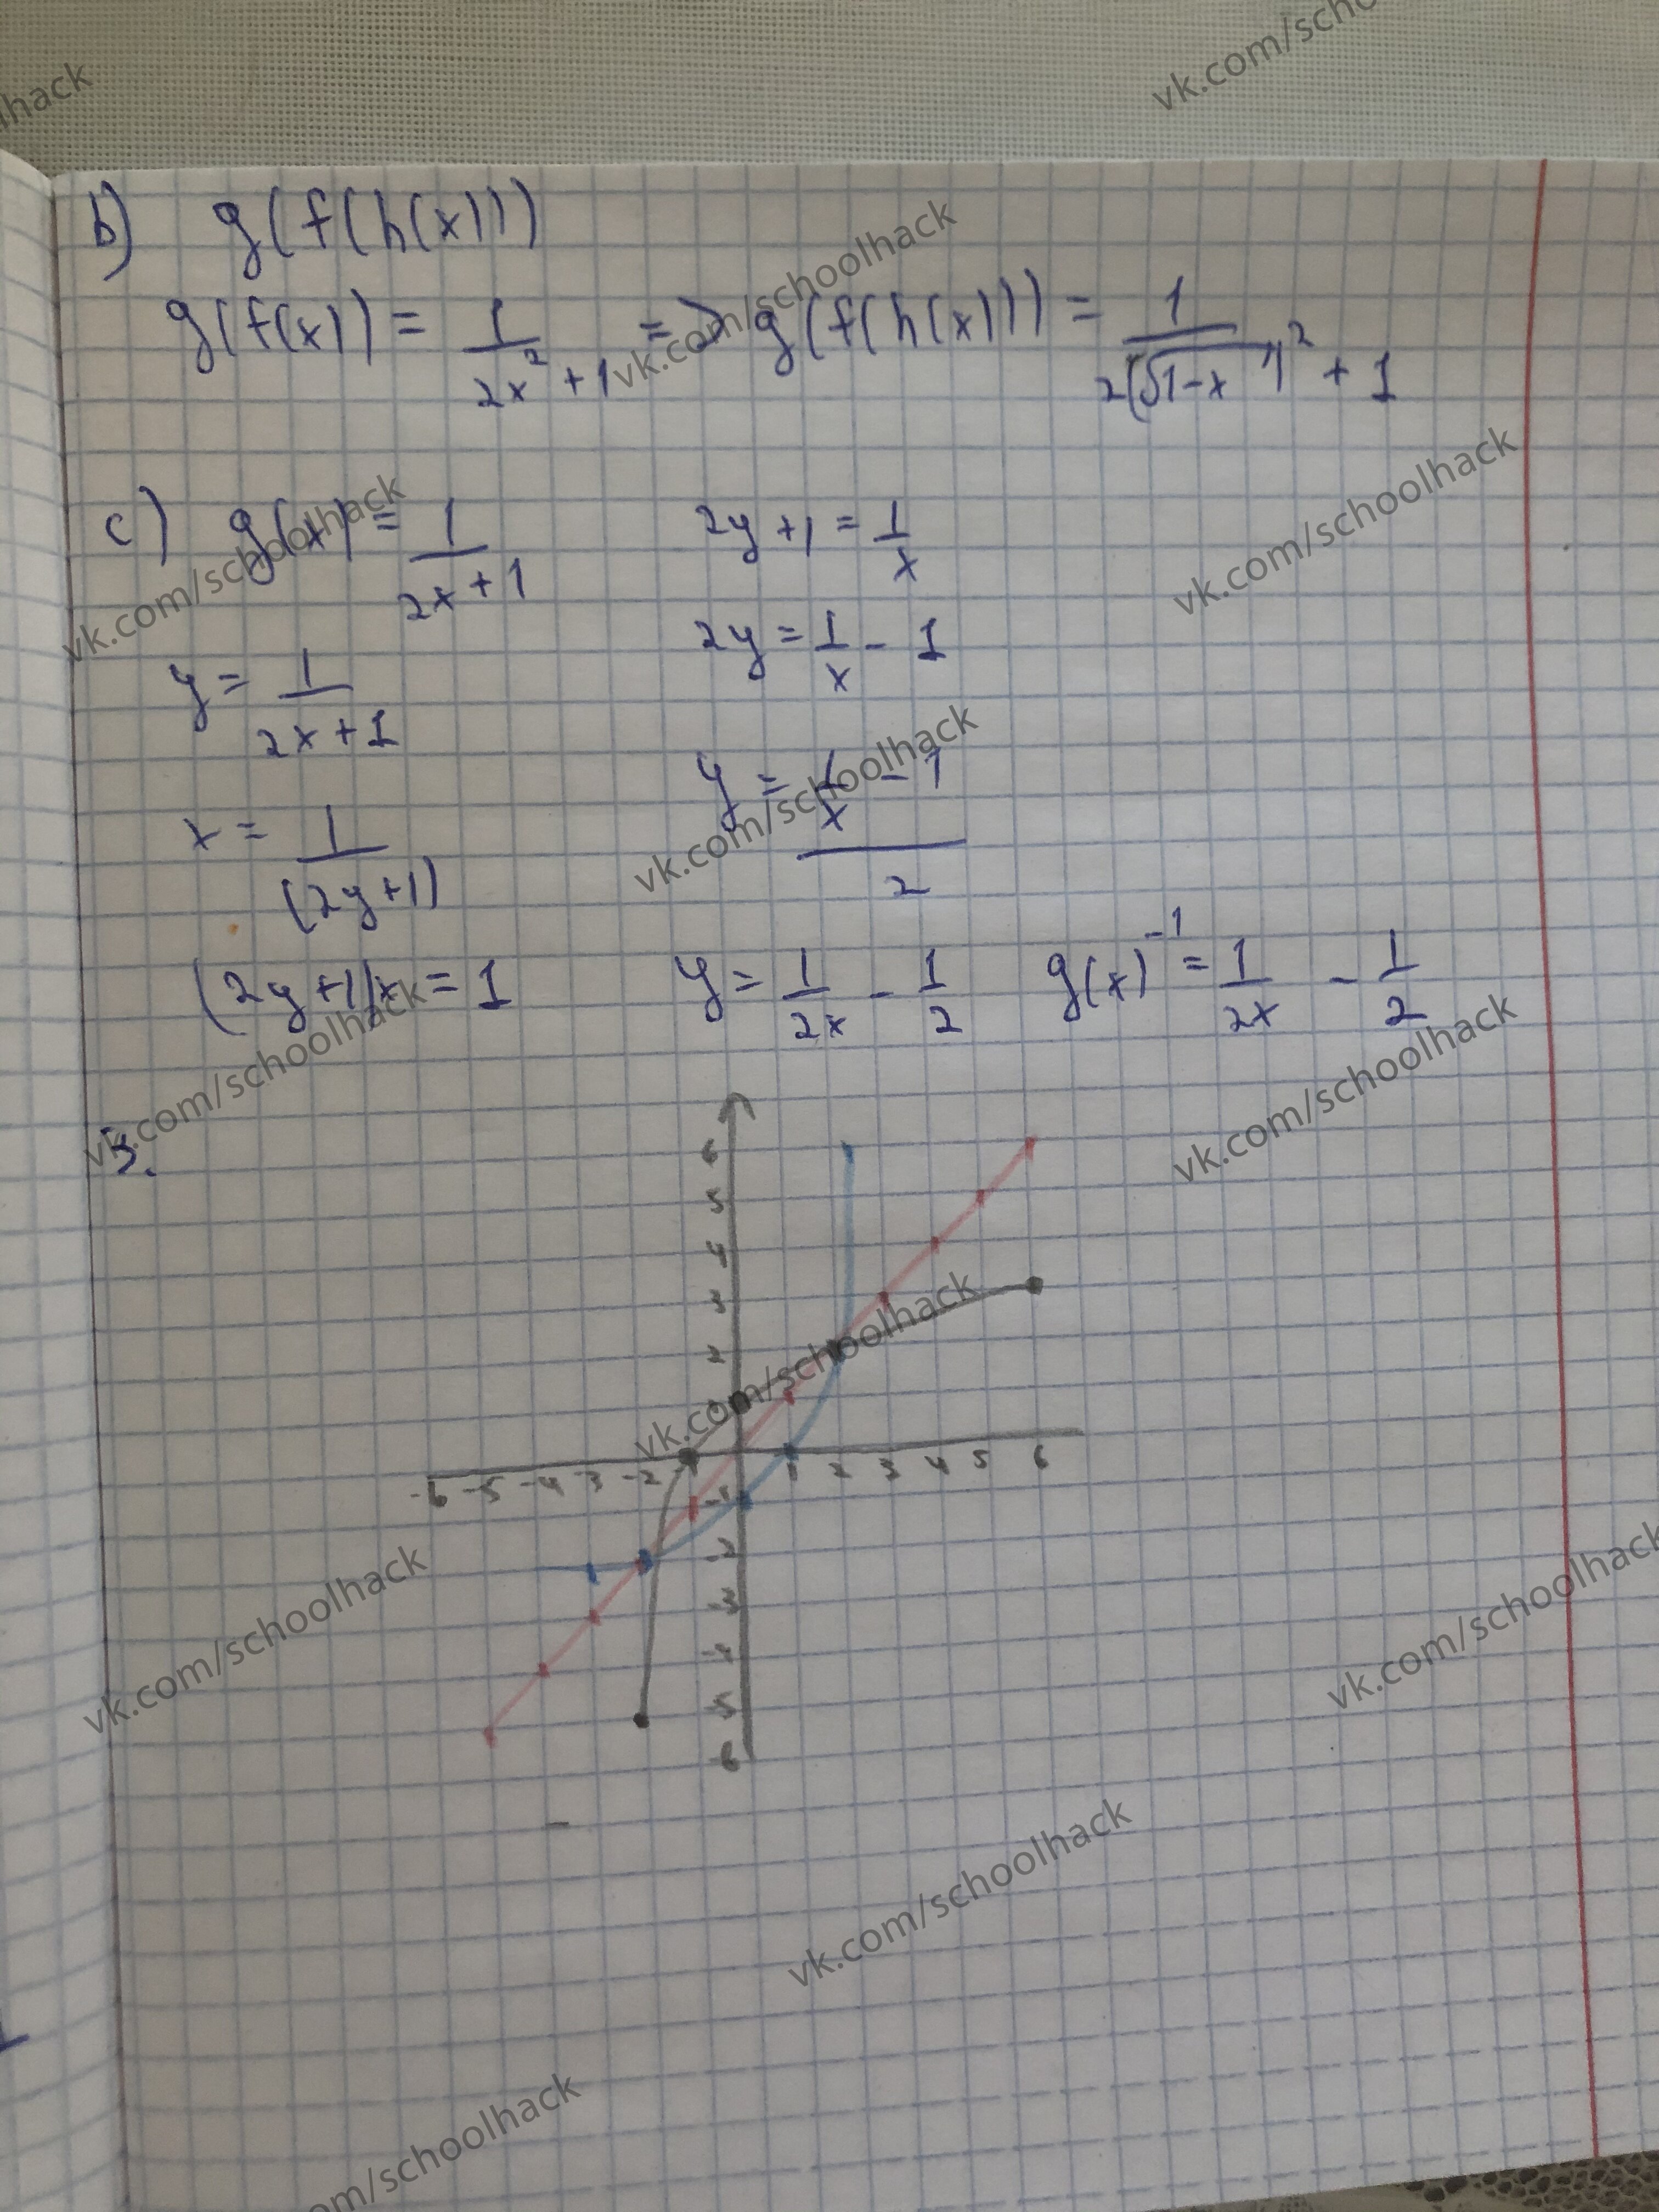 b) g(f(h(x)))
g(f(x)) = 1/(2x²+1) => g(f(h(x))) = 1/(2(√1-x)² + 1)
c) g(x) = 1/(2x+1)
y = 1/(2x+1)
x = 1/(2y+1)
(2y+1)x = 1
2y+1 = 1/x
2y = 1/x - 1
y = (1/x - 1)/2
y = 1/2x - 1/2
g(x)⁻¹ = 1/2x - 1/2
3.
6
5
4
3
2
-6 -5 -4 -3 -2 -1 1 2 3 4 5 6
-1
-2
-3
-4
-5
-6
vk.com/schoolhack
vk.com/schoolhack
vk.com/schoolhack
vk.com/schoolhack
vk.com/schoolhack
vk.com/schoolhack
vk.com/schoolhack
vk.com/schoolhack
vk.com/schoolhack
vk.com/schoolhack
vk.com/schoolhack